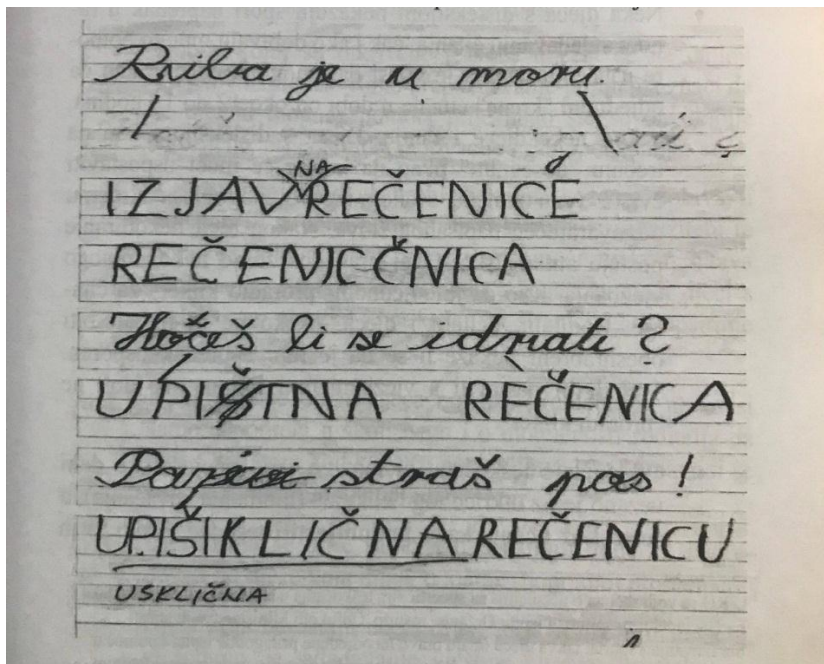 Rniba je u moru.
IZJAVNA REČENICE
REČENICČNICA
Hočeš li se idrati?
UPIŠTNA REČENICA
straš pas!
UPIŠIKLIČNA REČENICU
USKLIČNA